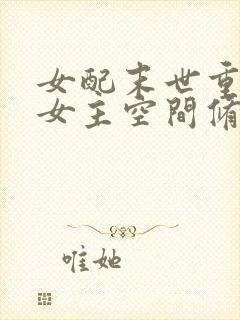 女配末世重
女主空間脩
唯她